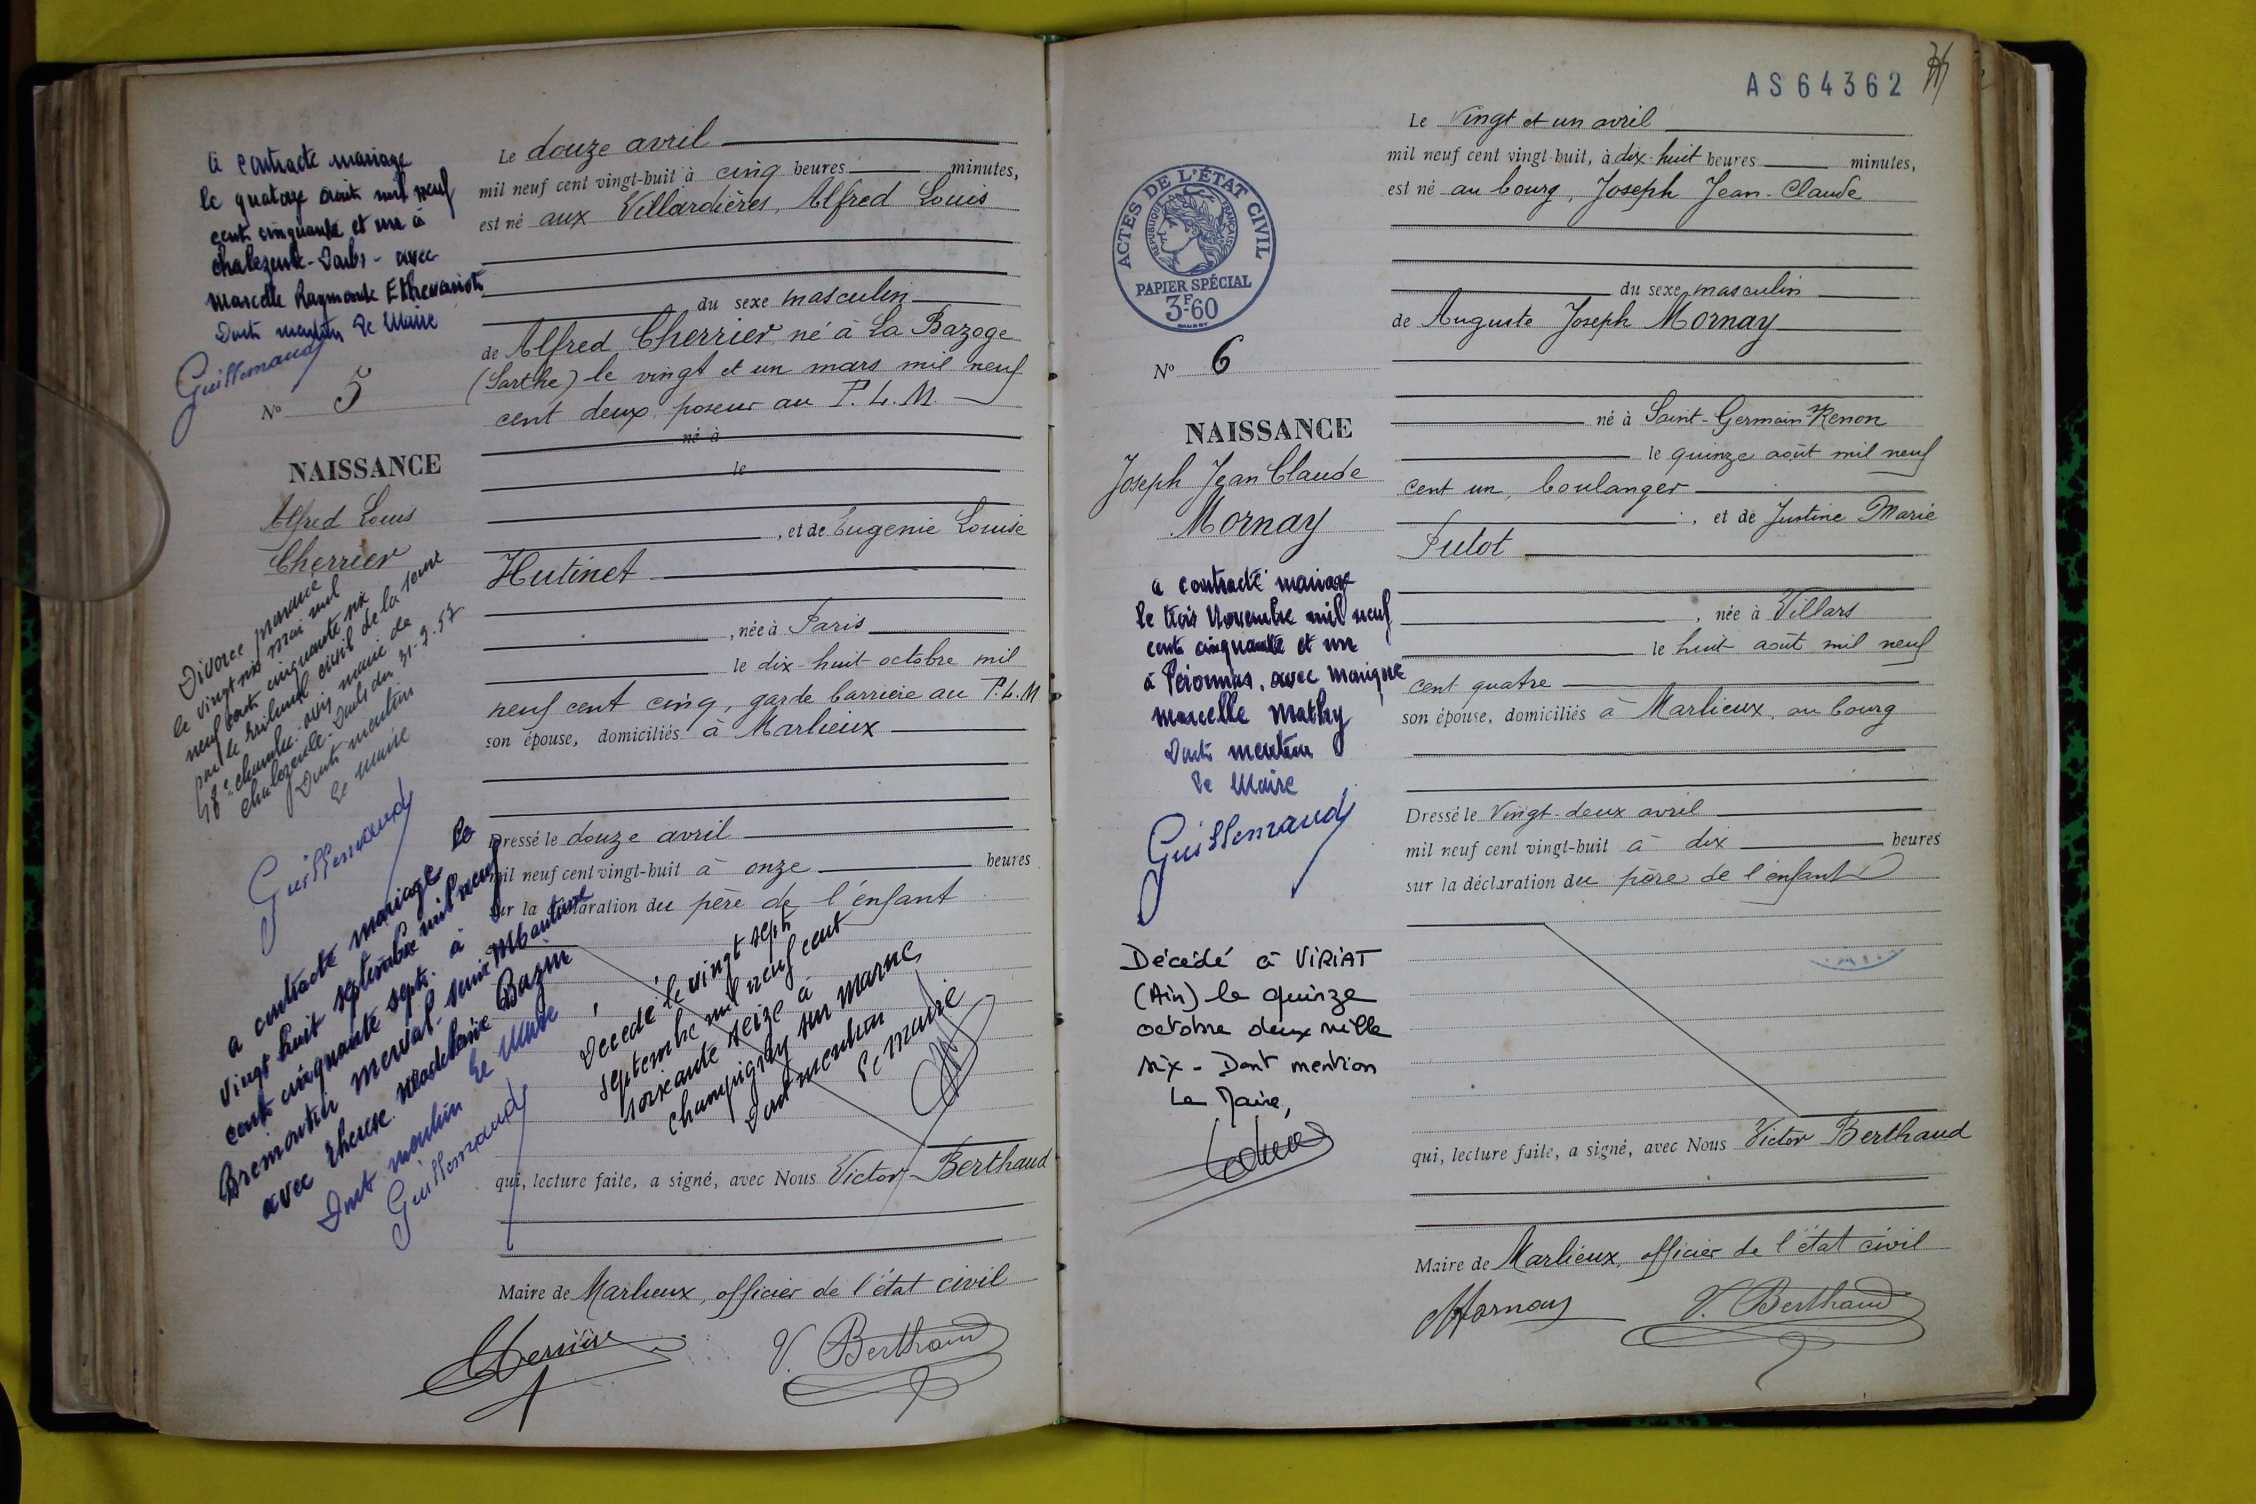 a contracté mariage
le quatorze août mil neuf
cent cinquante et un à
Chalezeule - Doubs - avec
Marcelle Raymonde Ethevenot
Dont mention Le Maire
Guillemaud
N° 5
NAISSANCE
Alfred Louis
Cherrier
Divorce prononcé
le vingt mai mil
neuf cent cinquante six
par le tribunal civil de la Seine
18e chambre. avis mairie de
Chalezeule. Doubs du 31-7-57
Dont mention
Le Maire
Guillemaud
a contracté mariage le
vingt huit septembre mil neuf
cent cinquante sept. à
Bremontier Merval. Seine Maritime
avec Therese Madeleine Bazin
Dont mention Le Maire
Guillemaud
Le douze avril
mil neuf cent vingt-huit à cinq heures minutes,
est né aux Villardières, Alfred Louis
du sexe masculin
de Alfred Cherrier né à La Bazoge
(Sarthe) le vingt et un mars mil neuf
cent deux, poseur au P. L. M.
né à
le
, et de Eugenie Louise
Hutinet
, née à Paris
le dix-huit octobre mil
neuf cent cinq, garde barrière au P.L.M
son épouse, domiciliés à Marlieux
Dressé le douze avril
mil neuf cent vingt-huit à onze heures
sur la déclaration du père de l'enfant
Décédé le vingt sept
septembre mil neuf cent
soixante seize à
Champigny sur Marne
Dont mention
Le Maire
qui, lecture faite, a signé, avec Nous Victor Berthaud
Maire de Marlieux, officier de l'état civil
Cherrier V. Berthaud
AS64362
ACTES DE L'ÉTAT CIVIL
RÉPUBLIQUE FRANÇAISE
PAPIER SPÉCIAL
3F60
N° 6
NAISSANCE
Joseph Jean Claude
Mornay
a contracté mariage
le trois Novembre mil neuf
cent cinquante et un
à Péronnas, avec Monique
Marcelle Mathy
Dont mention
Le Maire
Guillemaud
Décédé à VIRIAT
(Ain) le quinze
octobre deux mille
six - Dont mention
Le Maire,
Le vingt et un avril
mil neuf cent vingt-huit, à dix-huit heures minutes,
est né au bourg, Joseph Jean-Claude
du sexe masculin
de Auguste Joseph Mornay
né à Saint-Germain-s-Renon
le quinze août mil neuf
cent un, boulanger
, et de Justine Marie
Putot
, née à Villars
le huit août mil neuf
cent quatre
son épouse, domiciliés à Marlieux, au bourg
Dressé le vingt-deux avril
mil neuf cent vingt-huit à dix heures
sur la déclaration du père de l'enfant
qui, lecture faite, a signé, avec Nous Victor Berthaud
Maire de Marlieux, officier de l'état civil
Mornay V. Berthaud